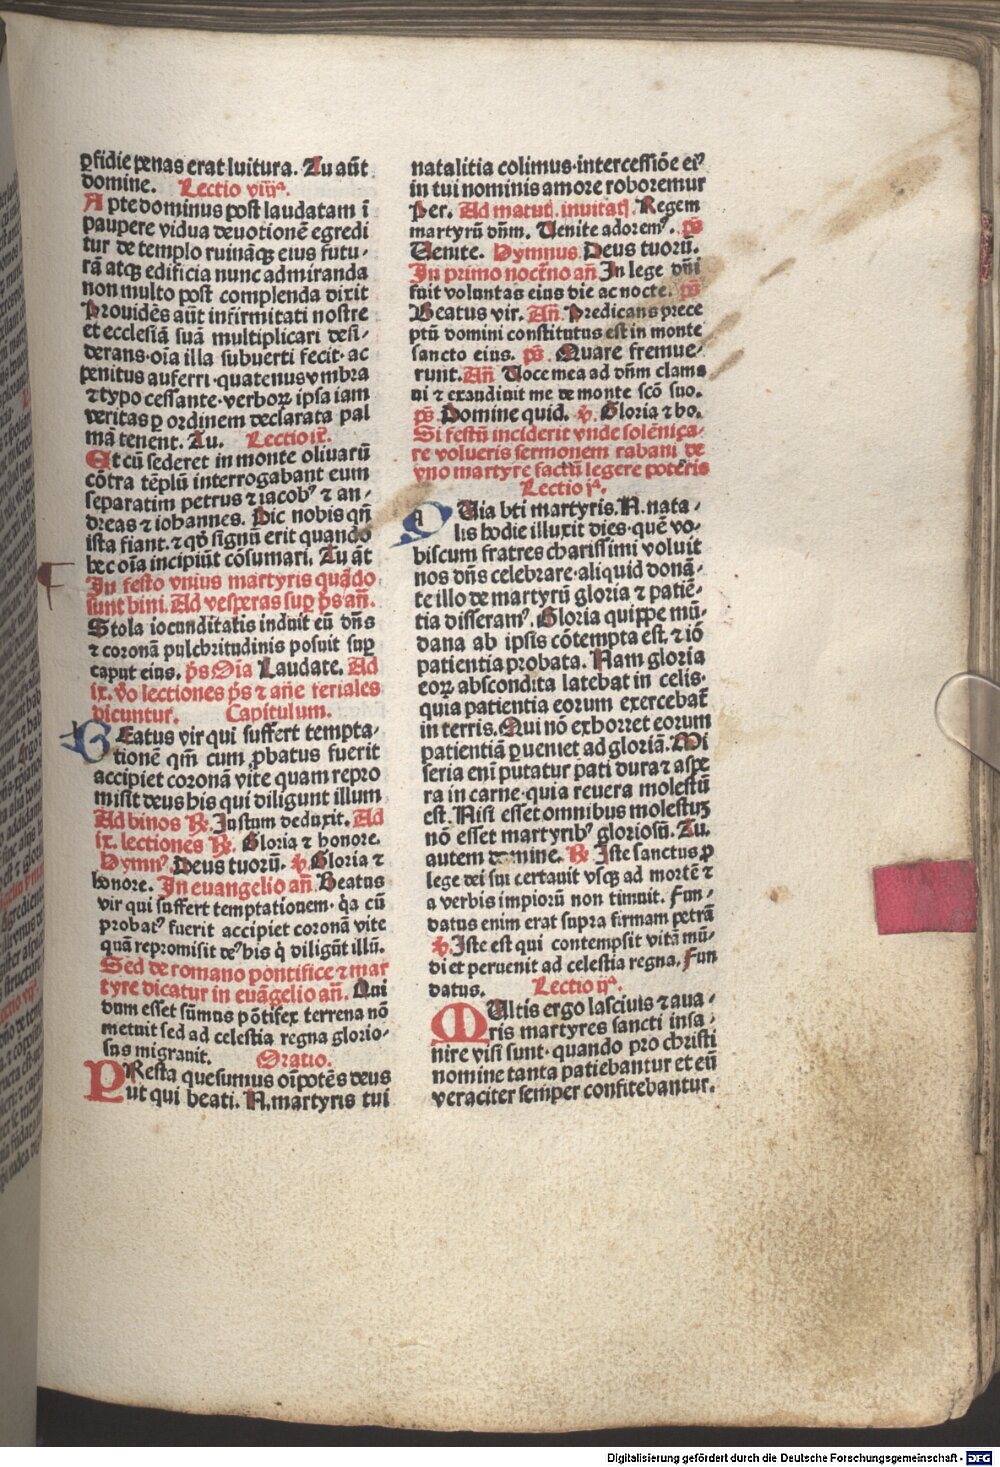 ꝑfidie penas erat luitura. Tu aūt
domine. Lectio viijᵃ.
Apte dominus post laudatam ī
paupere vidua deuotionē egredi
tur de templo ruināqꝫ eius futu-
rā atqꝫ edificia nunc admiranda
non multo post complenda dixit
Prouidēs aūt infirmitati nostre
et ecclesiā suā multiplicari desi-
derans·oīa illa subuerti fecit·ac
penitus auferri·quatenus vmbra
⁊ typo cessante·verboꝝ ipsa iam
veritas ꝑ ordinem declarata pal
mā tenent. Tu. Lectio ix.
Et cū sederet in monte oliuarū
cōtra tēplū interrogabant eum
separatim petrus ⁊ iacobꝰ ⁊ an-
dreas ⁊ iohannes. Dic nobis qn̄
ista fiant.⁊ qḋ signū erit quando
hec oīa incipiūt cōsumari. Tu aūt
In festo vnius martyris quādo
sunt bini. Ad vesperas suꝑ p̄s an̄.
Stola iocunditatis induit eū dn̄s
⁊ coronā pulchritudinis posuit suꝑ
caput eius. p̄s Oīa Laudate. Ad
ix. ṽo lectiones p̄s ⁊ an̄e feriales
dicuntur. Capitulum.
BEatus vir qui suffert tempta-
tionē qm̄ cum ꝓbatus fuerit
accipiet coronā vite quam repro
misit deus his qui diligunt illum
Ad binos ℟. Justum deduxit. Ad
ix. lectiones ℟. Gloria ⁊ honore.
Hymnꝰ. Deus tuorū. ℣ Gloria ⁊
honore. In euangelio an̄ Beatus
vir qui suffert temptationem·q̄a cū
probatꝰ fuerit accipiet coronā vite
quā repromisit deꝰ his q̄ diligūt illū.
Sed de romano pontifice ⁊ mar
tyre dicatur in euāgelio an̄. Qui
dum esset sūmus pōtifex terrena nō
metuit sed ad celestia regna glorio-
sus migrauit. Oratio.
PResta quesumus oīpotēs deus
ut qui beati. N. martyris tui
natalitia colimus·intercessiōe eiꝰ
in tui nominis amore roboremur
Per. Ad matut. inuitatꝭ. Regem
martyrū dn̄m. Venite adoremꝰ. p̄s
Venite. Hymnus Deus tuorū.
In primo noct̄no an̄ In lege dn̄i
fuit voluntas eius die ac nocte. p̄s
Beatus vir. An̄. Predicans prece
ptū domini constitutus est in monte
sancto eius. p̄s. Quare fremue-
runt. An̄ Voce mea ad dn̄m clama
ui ⁊ exaudiuit me de monte scō suo.
p̄s Domine quid. ℣. Gloria ⁊ ho.
Si festū inciderit vnde solēniza-
re volueris sermonem rabani de
vno martyre factū legere poteris
Lectio jᵃ.
QUia bti martyris. N. nata-
lis hodie illuxit dies·quē vo-
biscum fratres charissimi voluit
nos dn̄s celebrare·aliquid donā-
te illo de martyrū gloria ⁊ patiē-
tia disseramꝰ. Gloria quippe mū-
dana ab ipsis cōtempta est.⁊ iō
patientia probata. Nam gloria
eoꝝ abscondita latebat in celis·
quia patientia eorum exercebat̄
in terris. Qui nō exhorret eorum
patientiā ꝑueniet ad gloriā. Mi
seria eni putatur pati dura ⁊ aspe
ra in carne·quia reuera molestū
est. Nisi esset omnibus molestuꝫ
nō esset martyribꝰ gloriosū. Tu.
autem domine. ℟ Iste sanctus ꝓ
lege dei sui certauit vsqꝫ ad mortē ⁊
a verbis impiorū non timuit. Fun-
datus enim erat supra firmam petrā
℣. Iste est qui contempsit vitā mū-
di et peruenit ad celestia regna. Fun
datus. Lectio ijᵃ.
MUltis ergo lasciuis ⁊ aua-
ris martyres sancti insa-
nire visi sunt·quando pro christi
nomine tanta patiebantur et eū
veraciter semper confitebantur.
Digitalisierung gefördert durch die Deutsche Forschungsgemeinschaft - DFG